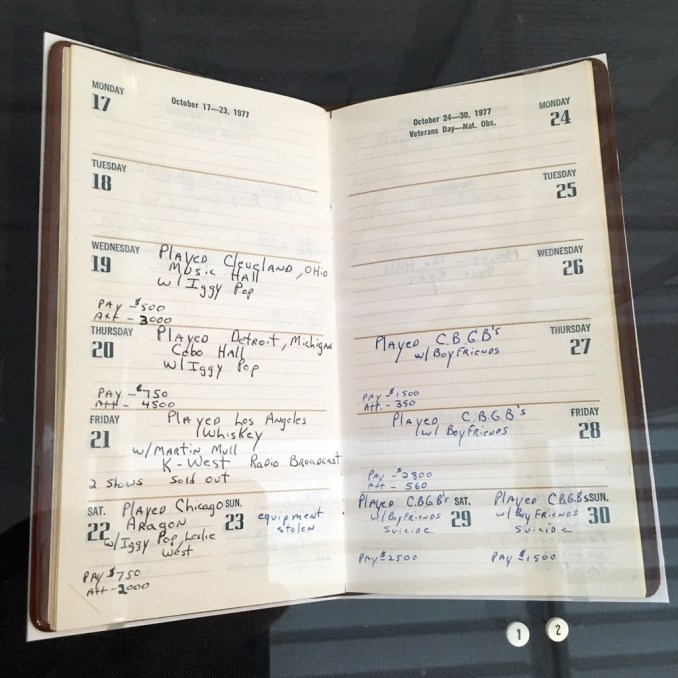 MONDAY
17
October 17—23, 1977
TUESDAY
18
WEDNESDAY
19
Played Cleveland, Ohio
Music Hall
w/ Iggy Pop
Pay - $500
Att - 3000
THURSDAY
20
Played Detroit, Michigan
Cobo Hall
w/ Iggy Pop
Pay - $750
Att - 4500
FRIDAY
21
Played Los Angeles
Whiskey
w/ Martin Mull
K-West Radio Broadcast
2 shows sold out
SAT.
22
Played Chicago
Aragon
w/ Iggy Pop, Leslie
West
Pay $750
Att - 2000
SUN.
23
equipment
stolen
October 24—30, 1977
Veterans Day—Nat. Obs.
MONDAY
24
TUESDAY
25
WEDNESDAY
26
THURSDAY
27
Played C.B.G.B's
w/ Boyfriends
Pay - $1500
Att. - 350
FRIDAY
28
Played C.B.G.B's
w/ Boyfriends
Pay - $2800
Att - 560
SAT.
29
Played C.B.G.B's
w/ Boyfriends
Suicide
Pay - $2500
SUN.
30
Played C.B.G.B.s
w/ Boy Friends
Suicide
Pay - $1500
1
2